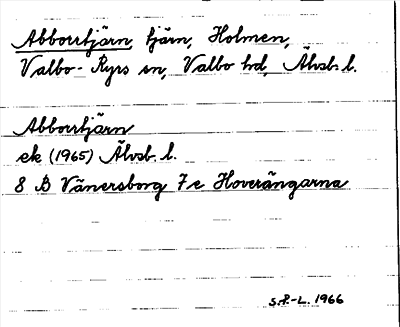 Abborrtjärn, tjärn, Holmen,
Valbo-Ryrs sn, Valbo hd, Älvsb. l.
Abborrtjärn
ek (1965) Älvsb. l.
8 B Vänersborg 7 e Hoverängarna
S.P.-L. 1966